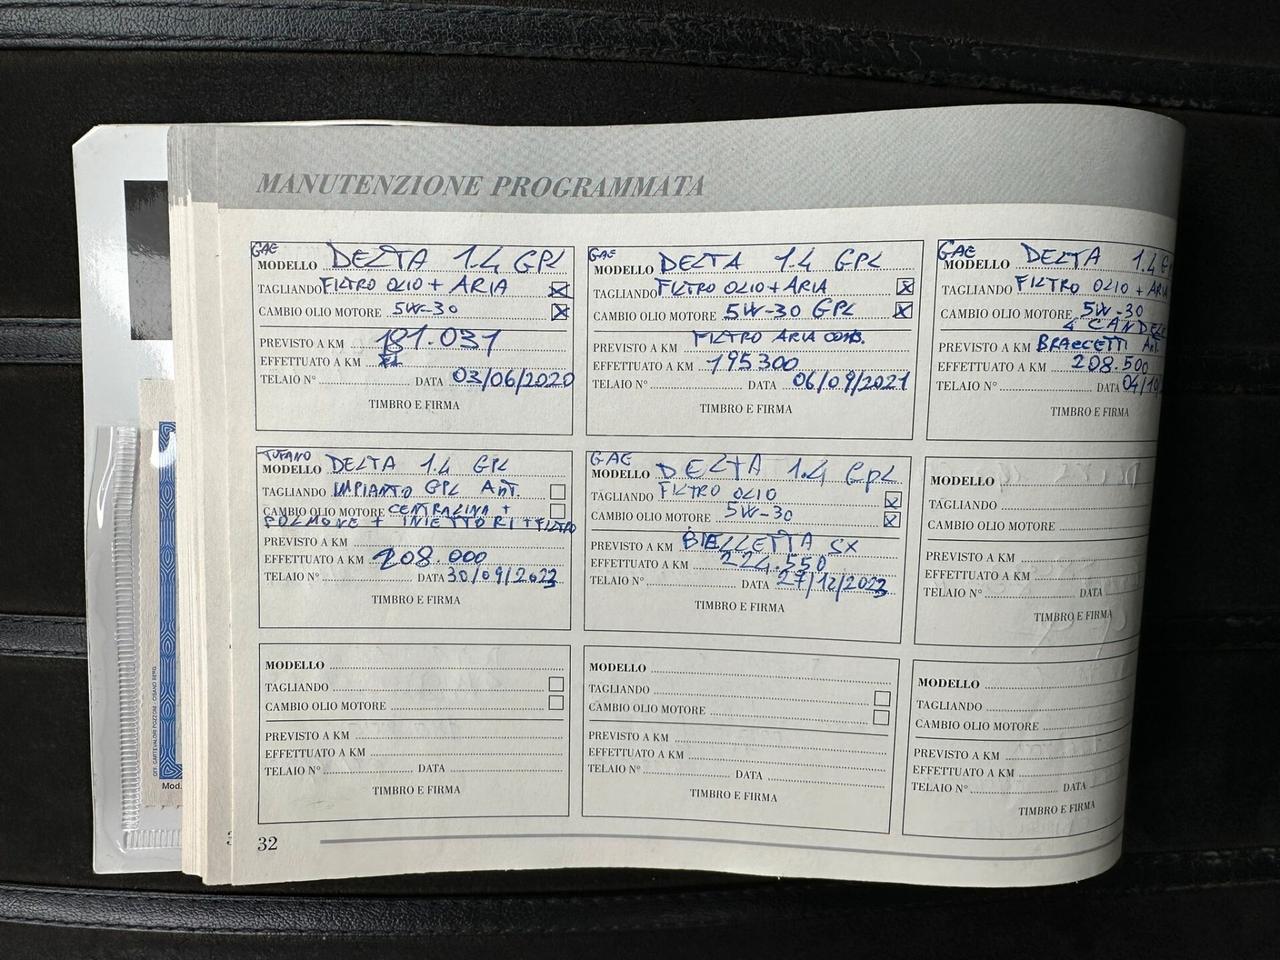 MANUTENZIONE PROGRAMMATA
GAE
MODELLO DELTA 1.4 GPL
TAGLIANDO FILTRO OLIO + ARIA
CAMBIO OLIO MOTORE 5W-30
PREVISTO A KM 181.031
EFFETTUATO A KM
TELAIO N° DATA 03/06/2020
TIMBRO E FIRMA
GAE
MODELLO DELTA 1.4 GPL
TAGLIANDO FILTRO OLIO + ARIA
CAMBIO OLIO MOTORE 5W-30 GPL
PREVISTO A KM FILTRO ARIA
EFFETTUATO A KM 195300
TELAIO N° DATA 06/09/2021
TIMBRO E FIRMA
GAE
MODELLO DELTA 1.4 G
TAGLIANDO FILTRO OLIO + ARIA
CAMBIO OLIO MOTORE 5W-30
4 CANDELE
PREVISTO A KM BRACCETTI ANT.
EFFETTUATO A KM 208.500
TELAIO N° DATA 04/10/
TIMBRO E FIRMA
TUFANO
MODELLO DELTA 1.4 GPL
TAGLIANDO IMPIANTO GPL ANT.
CAMBIO OLIO MOTORE CENTRALINA +
POLMONE + INIETTORI + FILTRO
PREVISTO A KM
EFFETTUATO A KM 208.000
TELAIO N° DATA 30/09/2023
TIMBRO E FIRMA
GAE
MODELLO DELTA 1.4 GPL
TAGLIANDO FILTRO OLIO
CAMBIO OLIO MOTORE 5W-30
PREVISTO A KM BIELLETTA SX
EFFETTUATO A KM 224.550
TELAIO N° DATA 27/12/2023
TIMBRO E FIRMA
MODELLO
TAGLIANDO
CAMBIO OLIO MOTORE
PREVISTO A KM
EFFETTUATO A KM
TELAIO N° DATA
TIMBRO E FIRMA
MODELLO
TAGLIANDO
CAMBIO OLIO MOTORE
PREVISTO A KM
EFFETTUATO A KM
TELAIO N° DATA
TIMBRO E FIRMA
MODELLO
TAGLIANDO
CAMBIO OLIO MOTORE
PREVISTO A KM
EFFETTUATO A KM
TELAIO N° DATA
TIMBRO E FIRMA
MODELLO
TAGLIANDO
CAMBIO OLIO MOTORE
PREVISTO A KM
EFFETTUATO A KM
TELAIO N° DATA
TIMBRO E FIRMA
32
Mod.